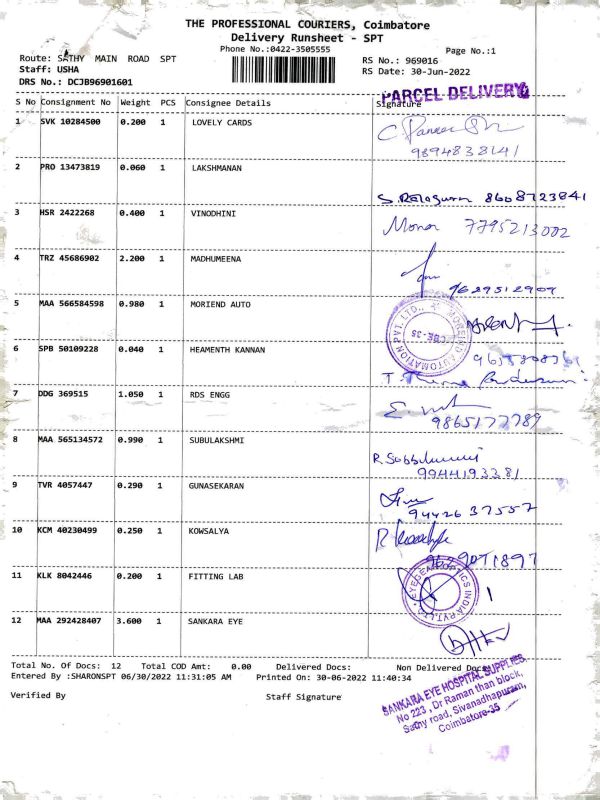 THE PROFESSIONAL COURIERS, Coimbatore
Delivery Runsheet - SPT
Phone No.:0422-3505555
Page No.:1
Route: SATHY MAIN ROAD SPT
RS No.: 969016
Staff: USHA
RS Date: 30-Jun-2022
DRS No.: DCJB96901601
PARCEL DELIVERY
S No Consignment No Weight PCS Consignee Details Signature
1 SVK 10284500 0.200 1 LOVELY CARDS
9894838141
2 PRO 13473819 0.060 1 LAKSHMANAN
8608723841
3 HSR 2422268 0.400 1 VINODHINI
7795213002
4 TRZ 45686902 2.200 1 MADHUMEENA
9629512909
5 MAA 566584598 0.980 1 MORIEND AUTO
MORIEND AUTOMATION PVT. LTD.,
CBE-35
6 SPB 50109228 0.040 1 HEAMENTH KANNAN
7 DDG 369515 1.050 1 RDS ENGG
9865177789
8 MAA 565134572 0.990 1 SUBULAKSHMI
R Subbulaxmi
9944193381
9 TVR 4057447 0.290 1 GUNASEKARAN
9442637557
10 KCM 40230499 0.250 1 KOWSALYA
11 KLK 8042446 0.200 1 FITTING LAB
12 MAA 292428407 3.600 1 SANKARA EYE
Total No. Of Docs: 12 Total COD Amt: 0.00 Delivered Docs: Non Delivered Docs:
Entered By :SHARONSPT 06/30/2022 11:31:05 AM Printed On: 30-06-2022 11:40:34
Verified By Staff Signature
SANKARA EYE HOSPITAL SUPPLIES,
No 223, Dr Raman than block,
Sathy road, Sivanadhapuram,
Coimbatore-35